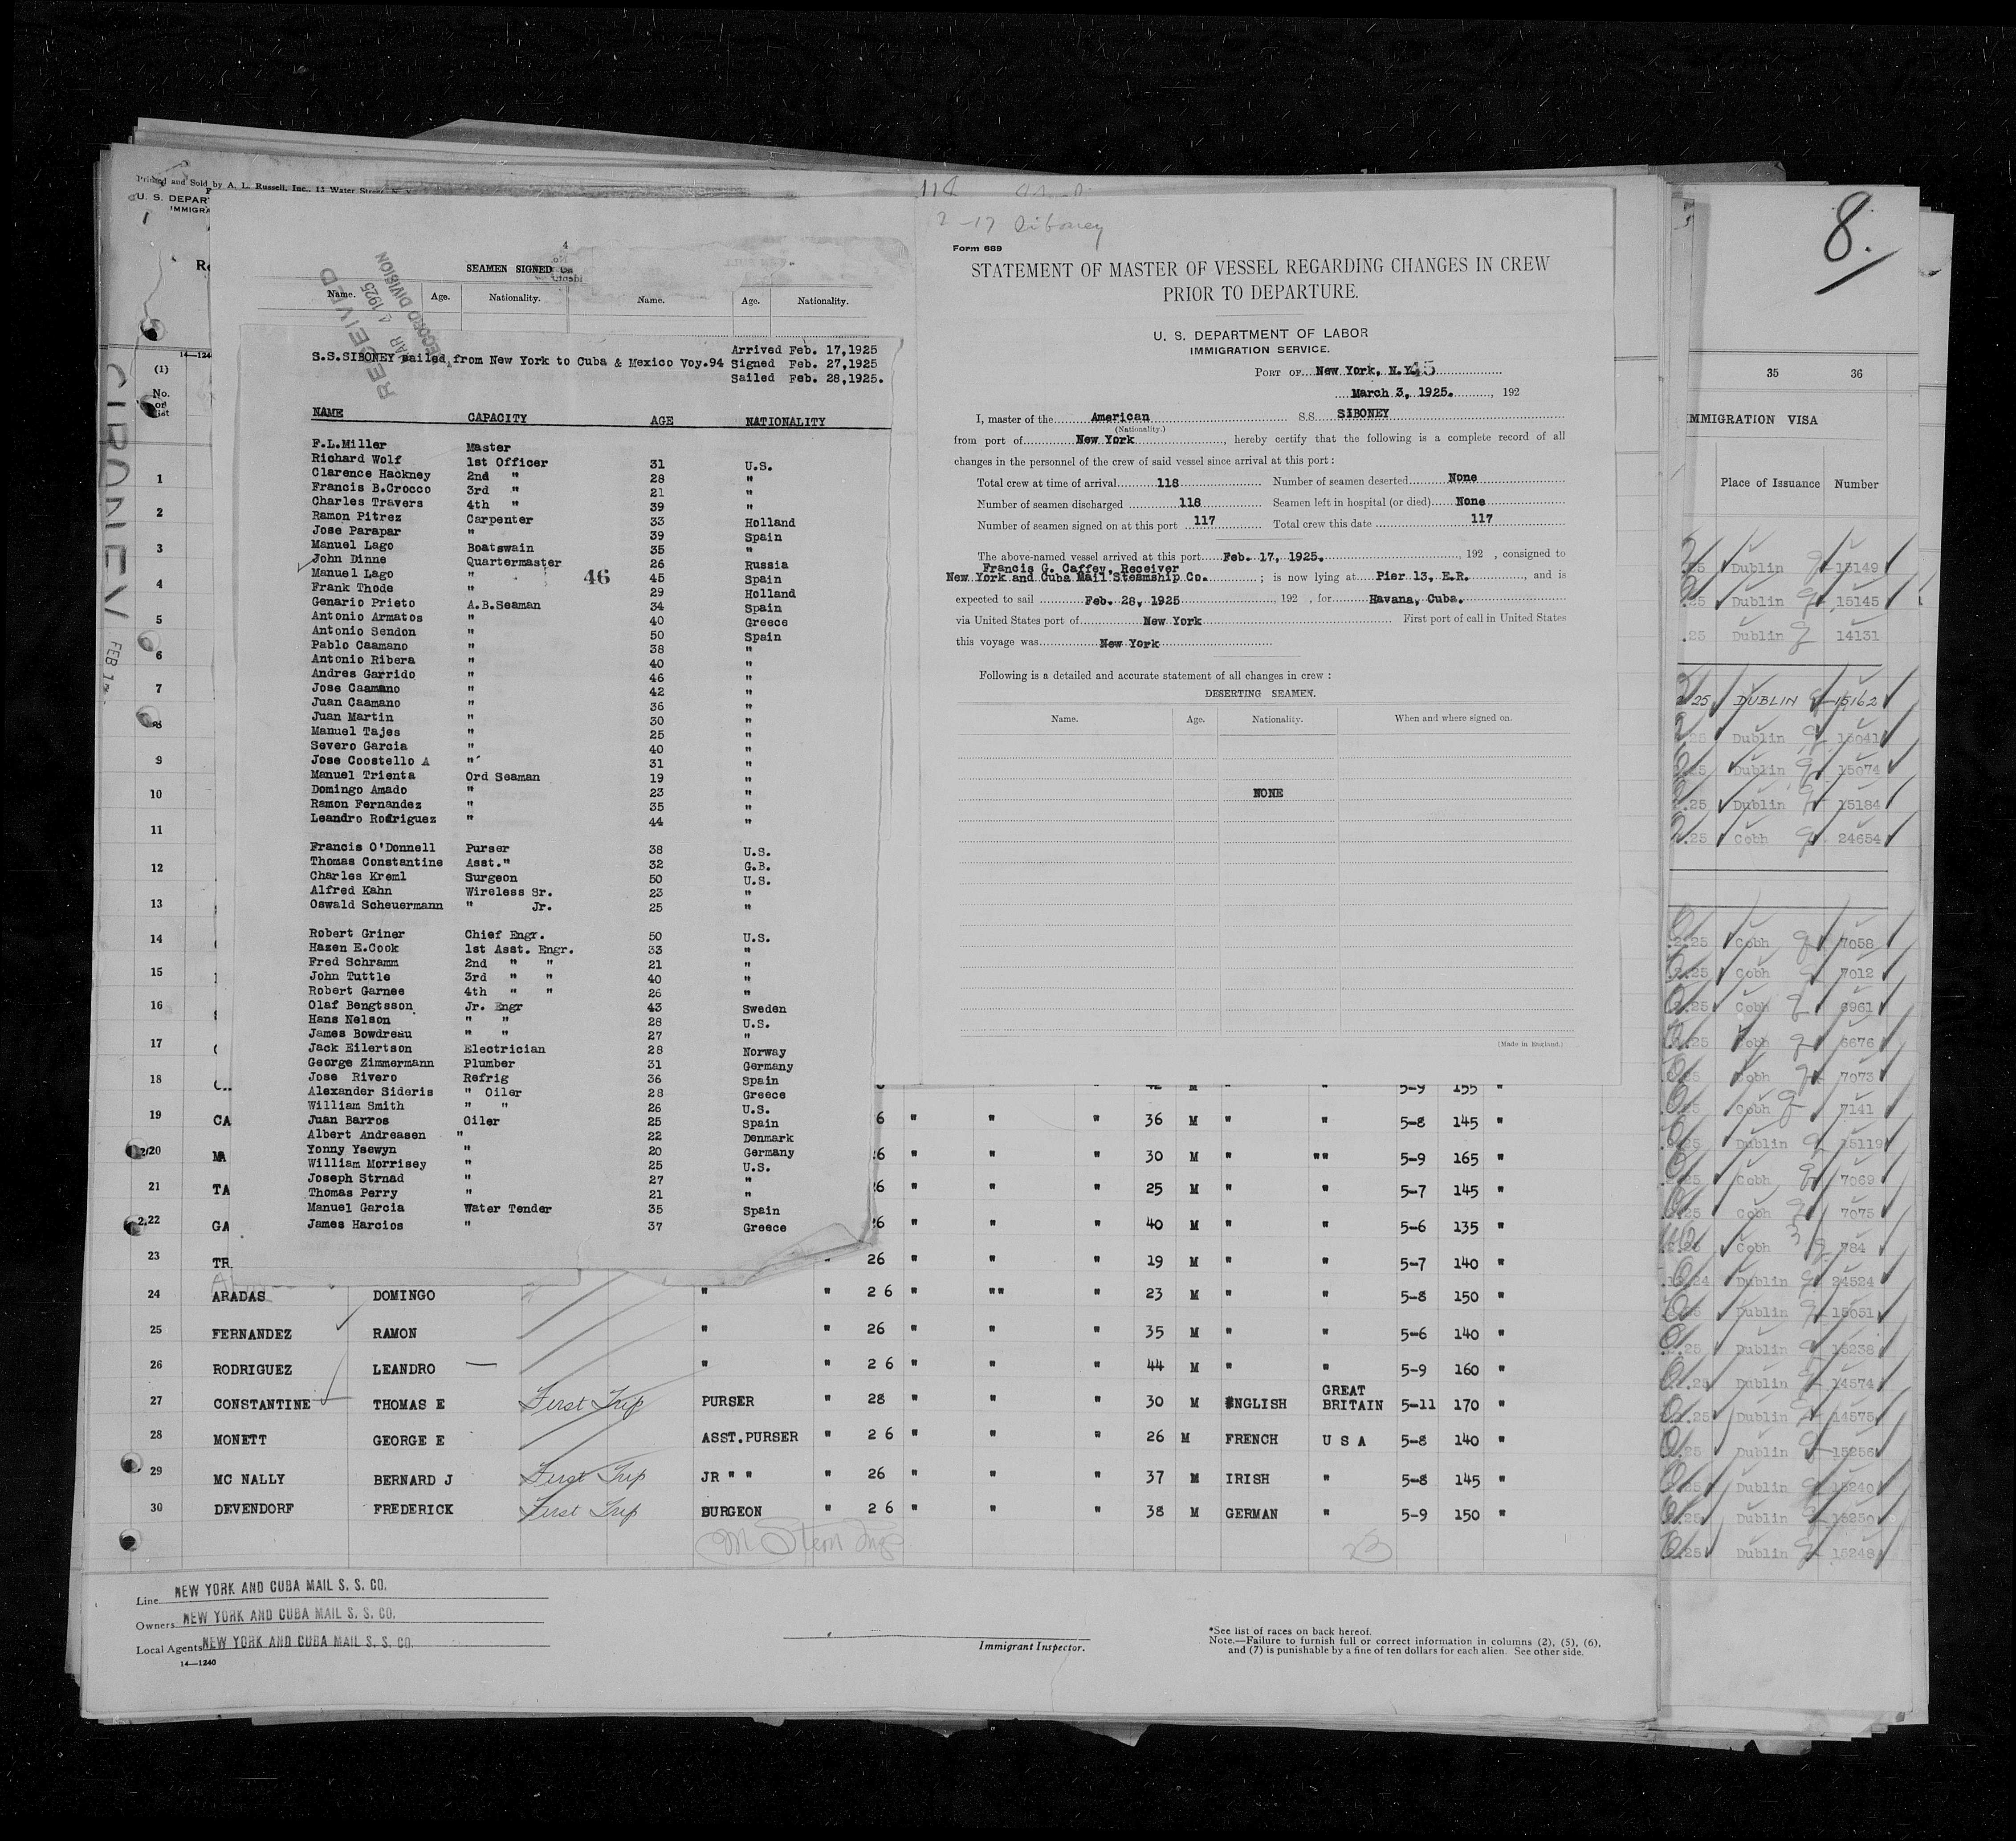 Printed and Sold by A. L. Russell, Inc., 13 Water Street
U. S. DEPART
IMMIGRA
14—1240
(1)
No.
on
list
SIBONEY FEB 17
SEAMEN SIGNED
Name. Age. Nationality. Name. Age. Nationality.
RECEIVED
MAR 4 1925
RECORD DIVISION
Arrived Feb. 17,1925
S.S.SIBONEY sailed from New York to Cuba & Mexico Voy.94 Signed Feb. 27,1925
Sailed Feb. 28,1925.
NAME CAPACITY AGE NATIONALITY
F.L.Miller Master
Richard Wolf 1st Officer 31 U.S.
Clarence Hackney 2nd " 28 "
Francis B.Crocco 3rd " 21 "
Charles Travers 4th " 39 "
Ramon Pitrez Carpenter 33 Holland
Jose Parapar " 39 Spain
Manuel Lago Boatswain 35 "
John Dinne Quartermaster 26 Russia
Manuel Lago " 45 Spain
46
Frank Thode " 29 Holland
Genario Prieto A.B.Seaman 34 Spain
Antonio Armatos " 40 Greece
Antonio Sendon " 50 Spain
Pablo Caamano " 38 "
Antonio Ribera " 40 "
Andres Garrido " 46 "
Jose Caamano " 42 "
Juan Caamano " 36 "
Juan Martin " 30 "
Manuel Tajes " 25 "
Severo Garcia " 40 "
Jose Coostello A " 31 "
Manuel Trienta Ord Seaman 19 "
Domingo Amado " 23 "
Ramon Fernandez " 35 "
Leandro Rodriguez " 44 "
Francis O'Donnell Purser 38 U.S.
Thomas Constantine Asst." 32 G.B.
Charles Kreml Surgeon 50 U.S.
Alfred Kahn Wireless Sr. 23 "
Oswald Scheuermann " Jr. 25 "
Robert Griner Chief Engr. 50 U.S.
Hazen E.Cook 1st Asst. Engr. 33 "
Fred Schramm 2nd " " 21 "
John Tuttle 3rd " " 40 "
Robert Garnee 4th " " 26 "
Olaf Bengtsson Jr. Engr 43 Sweden
Hans Nelson " " 28 U.S.
James Bowdreau " " 27 "
Jack Eilertson Electrician 28 Norway
George Zimmermann Plumber 31 Germany
Jose Rivero Refrig 36 Spain
Alexander Sideris " Oiler 28 Greece
William Smith " " 26 U.S.
Juan Barros Oiler 25 Spain
Albert Andreasen " 22 Denmark
Yonny Ysewyn " 20 Germany
William Morrisey " 25 U.S.
Joseph Strnad " 27 "
Thomas Perry " 21 "
Manuel Garcia Water Tender 35 Spain
James Harcios " 37 Greece
2-17 Siboney
Form 689
STATEMENT OF MASTER OF VESSEL REGARDING CHANGES IN CREW
PRIOR TO DEPARTURE.
U. S. DEPARTMENT OF LABOR
IMMIGRATION SERVICE.
PORT OF New York, N.Y. 45
March 3, 1925. , 192
I, master of the American S.S. SIBONEY
(Nationality.)
from port of New York , hereby certify that the following is a complete record of all
changes in the personnel of the crew of said vessel since arrival at this port :
Total crew at time of arrival 118 Number of seamen deserted None
Number of seamen discharged 118 Seamen left in hospital (or died) None
Number of seamen signed on at this port 117 Total crew this date 117
The above-named vessel arrived at this port Feb. 17, 1925. , 192 , consigned to
Francis G. Caffey, Receiver
New York and Cuba Mail Steamship Co. ; is now lying at Pier 13, E.R. , and is
expected to sail Feb. 28, 1925 , 192 , for Havana, Cuba.
via United States port of New York First port of call in United States
this voyage was New York
Following is a detailed and accurate statement of all changes in crew :
DESERTING SEAMEN.
Name. Age. Nationality. When and where signed on.
NONE
(Made in England.)
1
2
3
4
5
6
7
8
9
10
11
12
13
14
15
16
17
18 42 M " " 5-9 155 "
19 CA 6 " " " 36 M " " 5-8 145 "
20 MA 26 " " " 30 M " "" 5-9 165 "
21 TA 26 " " " 25 M " " 5-7 145 "
22 GA 26 " " " 40 M " " 5-6 135 "
23 TR " 26 " " " 19 M " " 5-7 140 "
24 ARADAS DOMINGO " " 2 6 " "" " 23 M " " 5-8 150 "
25 FERNANDEZ RAMON " " 26 " " " 35 M " " 5-6 140 "
26 RODRIGUEZ LEANDRO — " " 2 6 " " " 44 M " " 5-9 160 "
27 CONSTANTINE THOMAS E First Trip PURSER " 28 " " " 30 M ENGLISH GREAT BRITAIN 5-11 170 "
28 MONETT GEORGE E ASST.PURSER " 2 6 " " " 26 M FRENCH U S A 5-8 140 "
29 MC NALLY BERNARD J First Trip JR " " " 26 " " " 37 M IRISH " 5-8 145 "
30 DEVENDORF FREDERICK First Trip BURGEON " 2 6 " " " 38 M GERMAN " 5-9 150 "
Line NEW YORK AND CUBA MAIL S. S. CO.
Owners NEW YORK AND CUBA MAIL S. S. CO.
Local Agents NEW YORK AND CUBA MAIL S. S. CO.
14—1240
Immigrant Inspector.
*See list of races on back hereof.
Note.—Failure to furnish full or correct information in columns (2), (5), (6),
and (7) is punishable by a fine of ten dollars for each alien. See other side.
8.
35 36
IMMIGRATION VISA
Place of Issuance Number
25 Dublin 15149
Dublin 15145
.25 Dublin 14131
25 DUBLIN 15162
Dublin 15041
25 Dublin 15074
.25 Dublin 15184
.25 Cobh 24654
.25 Cobh 7058
.25 Cobh 7012
.25 Cobh 6961
.25 Cobh 6676
25 Cobh 7073
25 Cobh 7141
25 Dublin 15119
25 Cobh 7069
25 Cobh 7075
25 Cobh 784
24 Dublin 24524
25 Dublin 15051
.25 Dublin 15238
.25 Dublin 14574
.25 Dublin 14575
25 Dublin 15256
.25 Dublin 15240
.25 Dublin 15250
.25 Dublin 15248